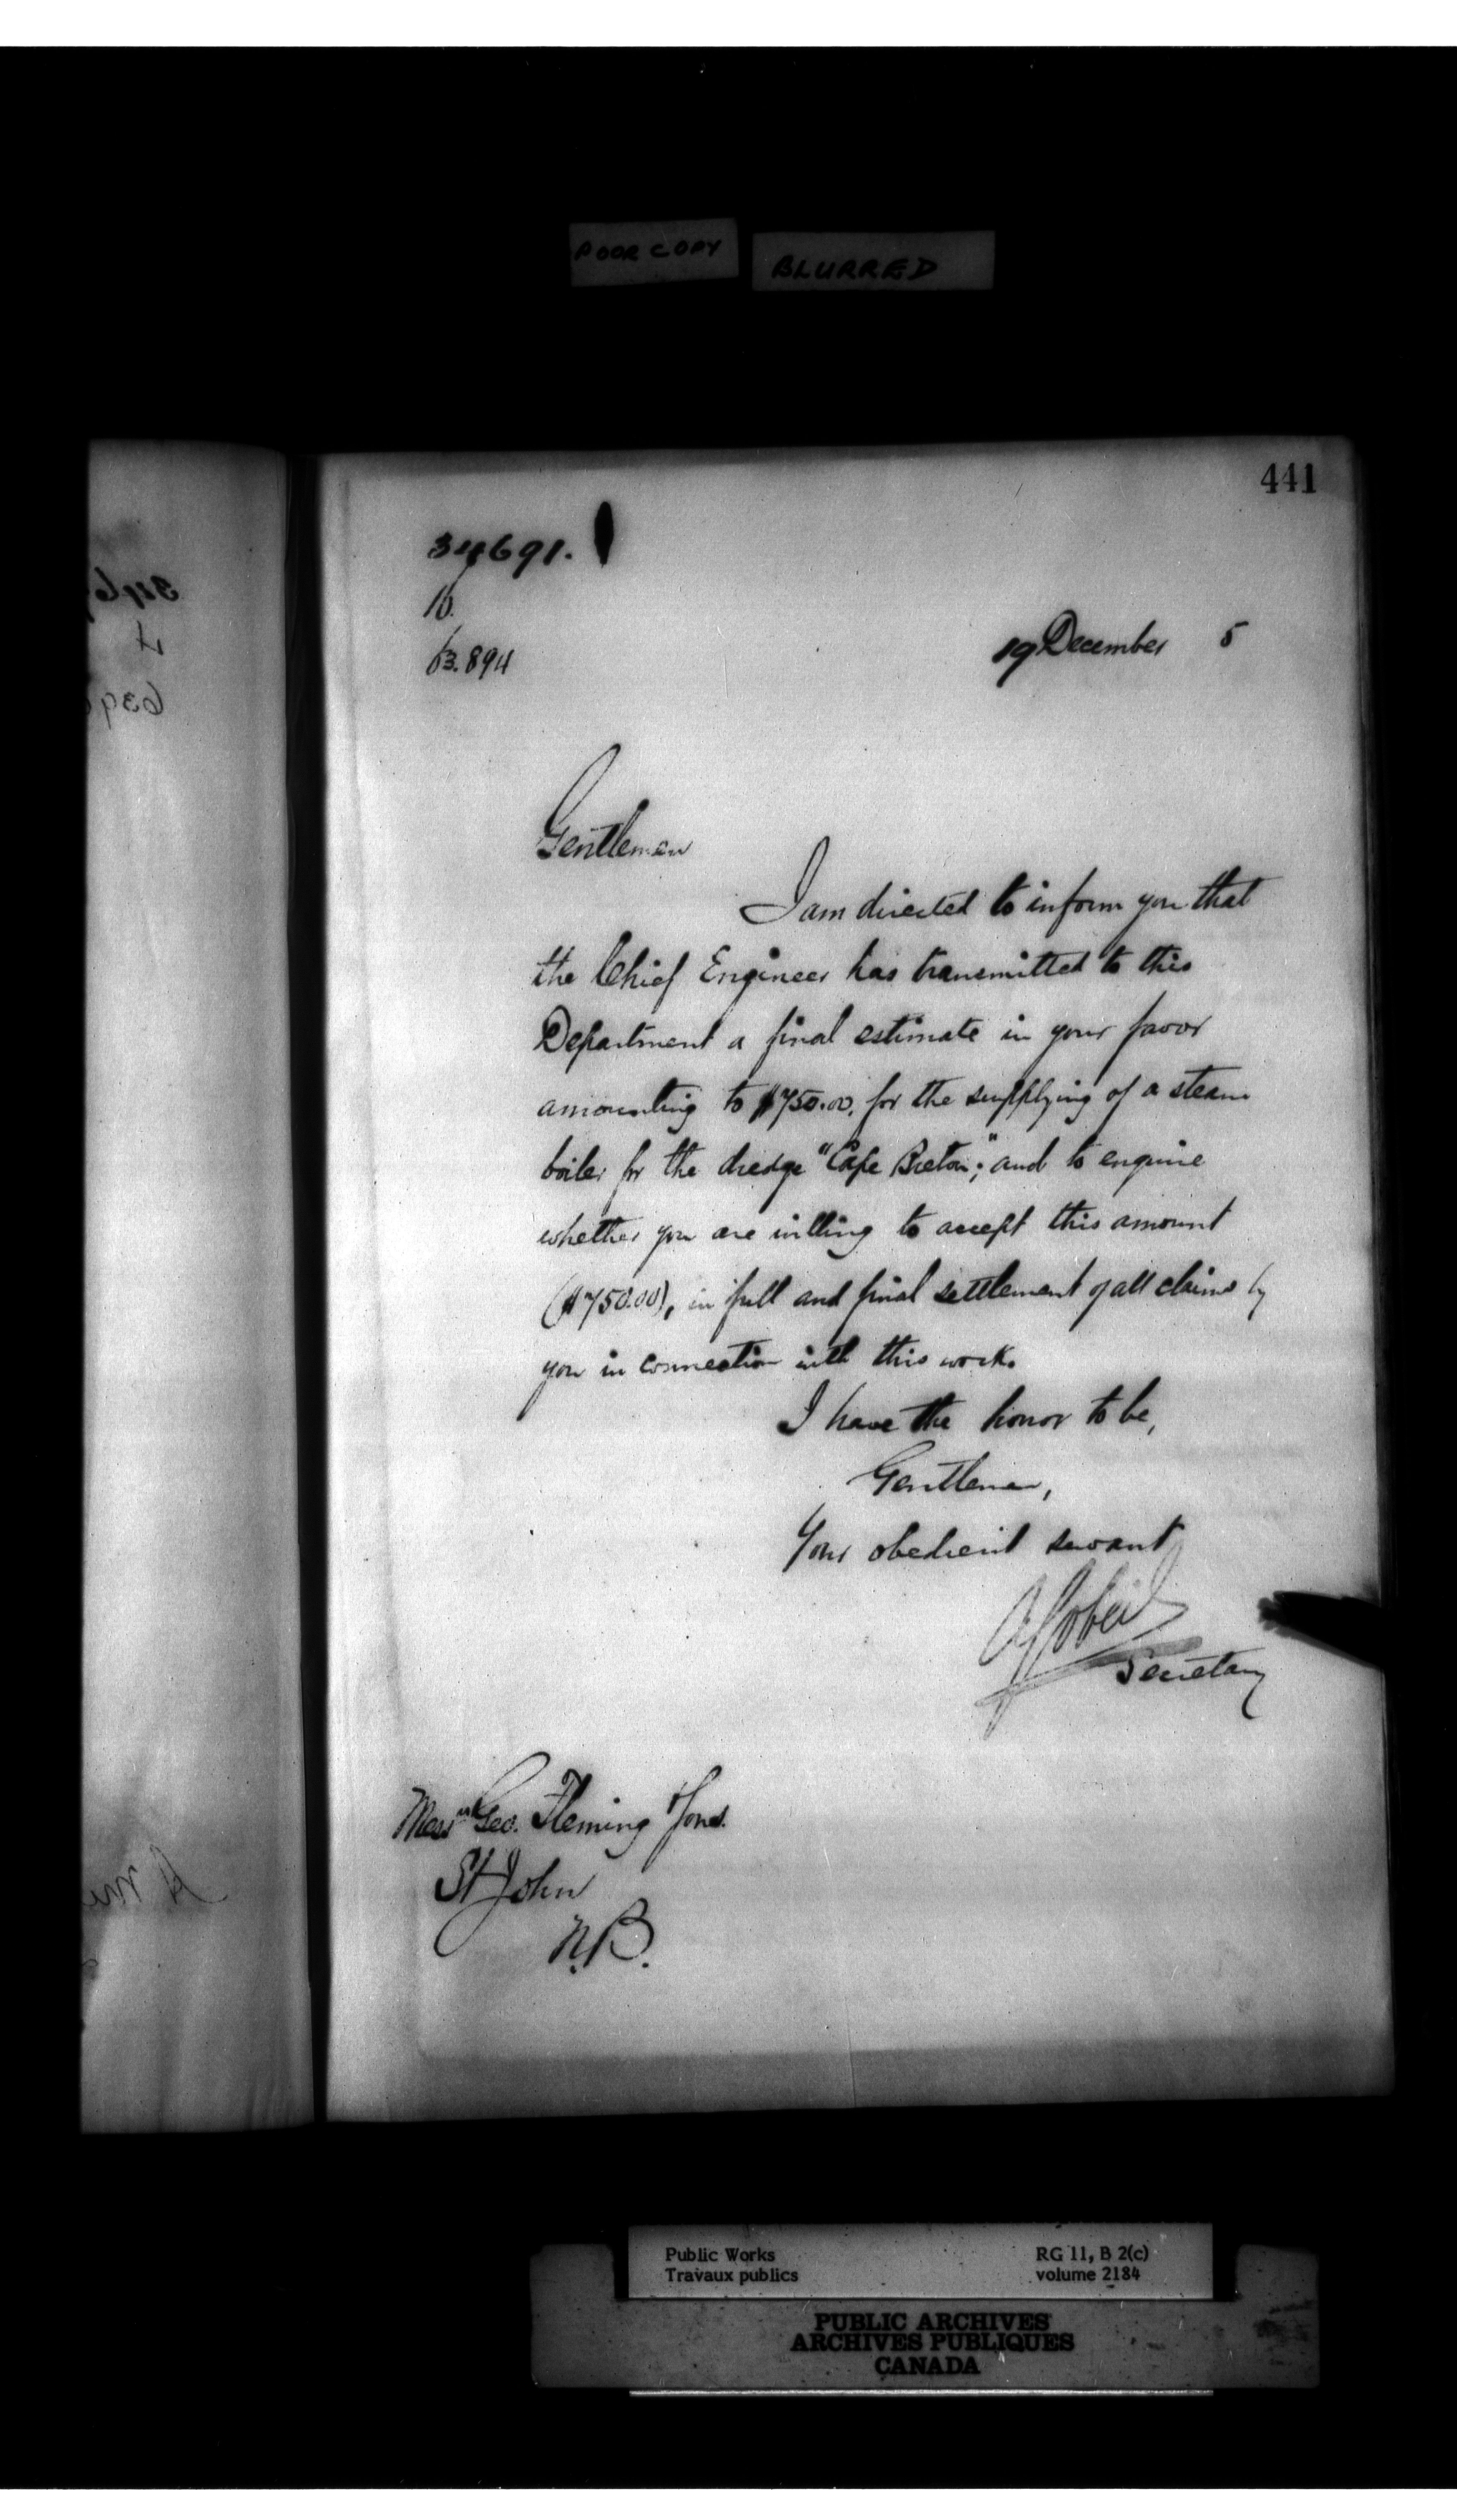 POOR COPY BLURRED
441
34691.
10.
63.894
19 December 5
Gentlemen
I am directed to inform you that
the Chief Engineer has transmitted to this
Department a final estimate in your favor
amounting to $750.00, for the supplying of a steam
boiler for the dredge "Cape Breton;" and to enquire
whether you are willing to accept this amount
($750.00), in full and final settlement of all claims by
you in connection with this work.
I have the honor to be,
Gentlemen,
Your obedient servant
A Gobeil
Secretary
Messrs Geo. Fleming & Sons.
St John
N.B.
Public Works RG 11, B 2(c)
Travaux publics volume 2184
PUBLIC ARCHIVES
ARCHIVES PUBLIQUES
CANADA